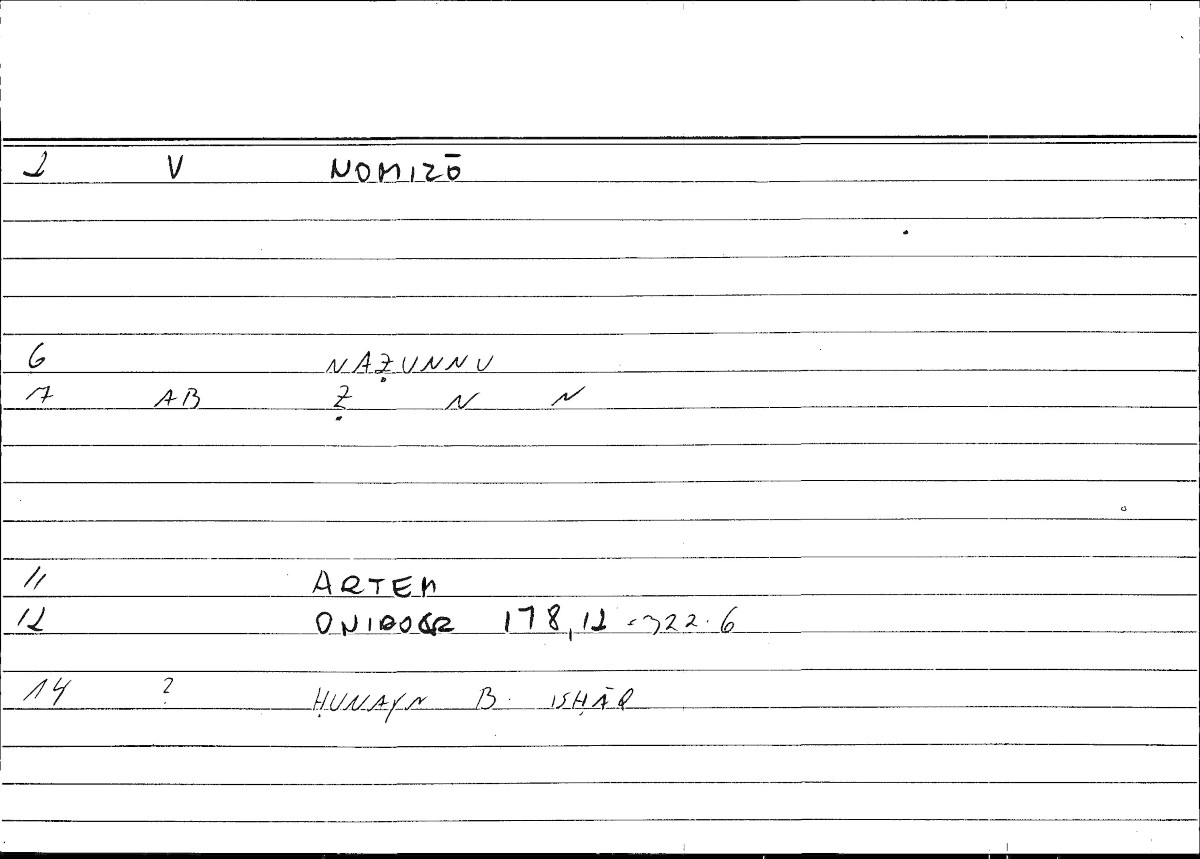 2 V NOMIZŌ
6 NAẒUNNU
7 AB Ẓ N N
11 ARTEM
12 ONIROCR 178,12 = 322.6
14 ? ḤUNAYN B. ISḤĀQ